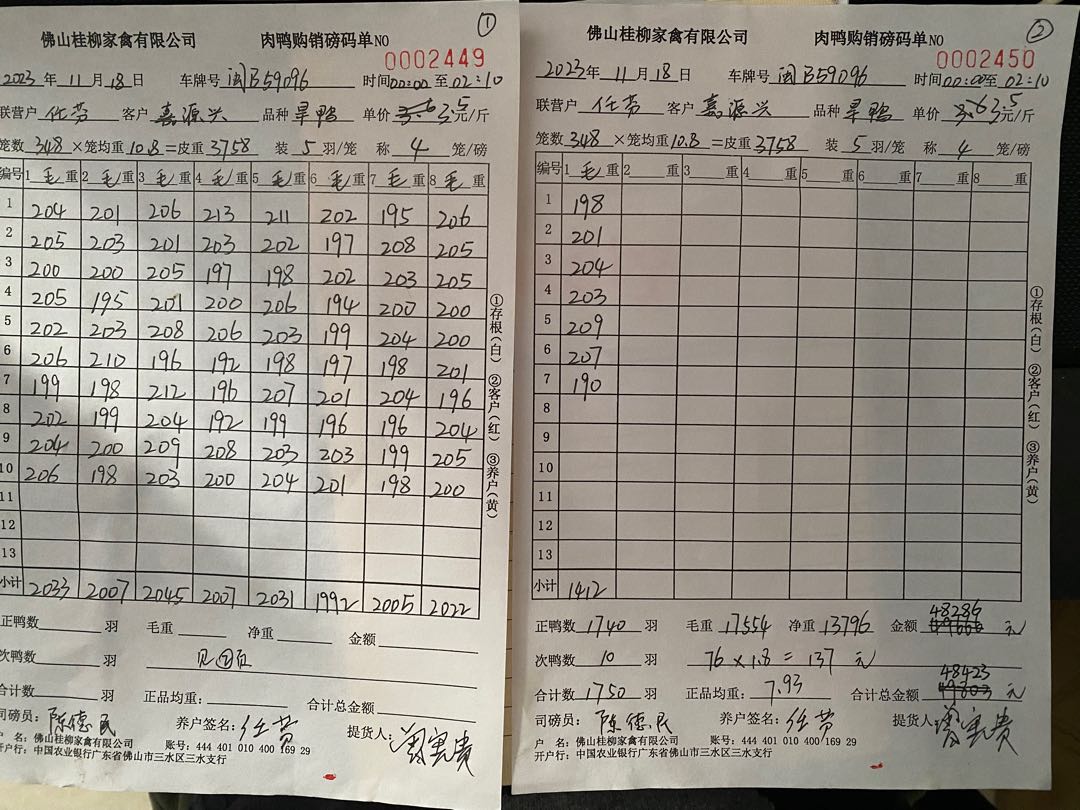 ①
佛山桂柳家禽有限公司 肉鸭购销磅码单NO 0002449
2023年 11月 18日 车牌号 闽B59096 时间00:00至02:10
联营户 任芳 客户 嘉源兴 品种 旱鸭 单价 3.6 3.5 元/斤
笼数 348 ×笼均重 10.8 =皮重 3758 装 5 羽/笼 称 4 笼/磅
编号 1毛重 2毛重 3毛重 4毛重 5毛重 6毛重 7毛重 8毛重
1 204 201 206 213 211 202 195 206
2 205 203 201 203 202 197 208 205
3 200 200 205 197 198 202 203 205
4 205 195 201 200 206 194 200 200
5 202 203 208 206 203 199 204 200
6 206 210 196 192 198 197 198 201
7 199 198 212 196 207 201 204 196
8 202 199 204 192 199 196 196 204
9 204 200 209 208 203 203 199 205
10 206 198 203 200 204 201 198 200
11
12
13
小计 2033 2007 2045 2007 2031 1992 2005 2022
①存根(白) ②客户(红) ③养户(黄)
正鸭数 羽 毛重 净重 金额
次鸭数 羽 见②页
合计数 羽 正品均重: 合计总金额
司磅员: 陈德民 养户签名: 任芳 提货人:
户 名: 佛山桂柳家禽有限公司 账号: 444 401 010 400 169 29
开户行: 中国农业银行广东省佛山市三水区三水支行
②
佛山桂柳家禽有限公司 肉鸭购销磅码单NO 0002450
2023年 11月 18日 车牌号 闽B59096 时间00:00至02:10
联营户 任芳 客户 嘉源兴 品种 旱鸭 单价 3.6 3.5 元/斤
笼数 348 ×笼均重 10.8 =皮重 3758 装 5 羽/笼 称 4 笼/磅
编号 1毛重 2 重 3 重 4 重 5 重 6 重 7 重 8 重
1 198
2 201
3 204
4 203
5 209
6 207
7 190
8
9
10
11
12
13
小计 1412
①存根(白) ②客户(红) ③养户(黄)
正鸭数 1740 羽 毛重 17554 净重 13796 金额 48286 元
次鸭数 10 羽 76×1.8=137元
合计数 1750 羽 正品均重: 7.93 合计总金额 48423 49803 元
司磅员: 陈德民 养户签名: 任芳 提货人:
户 名: 佛山桂柳家禽有限公司 账号: 444 401 010 400 169 29
开户行: 中国农业银行广东省佛山市三水区三水支行